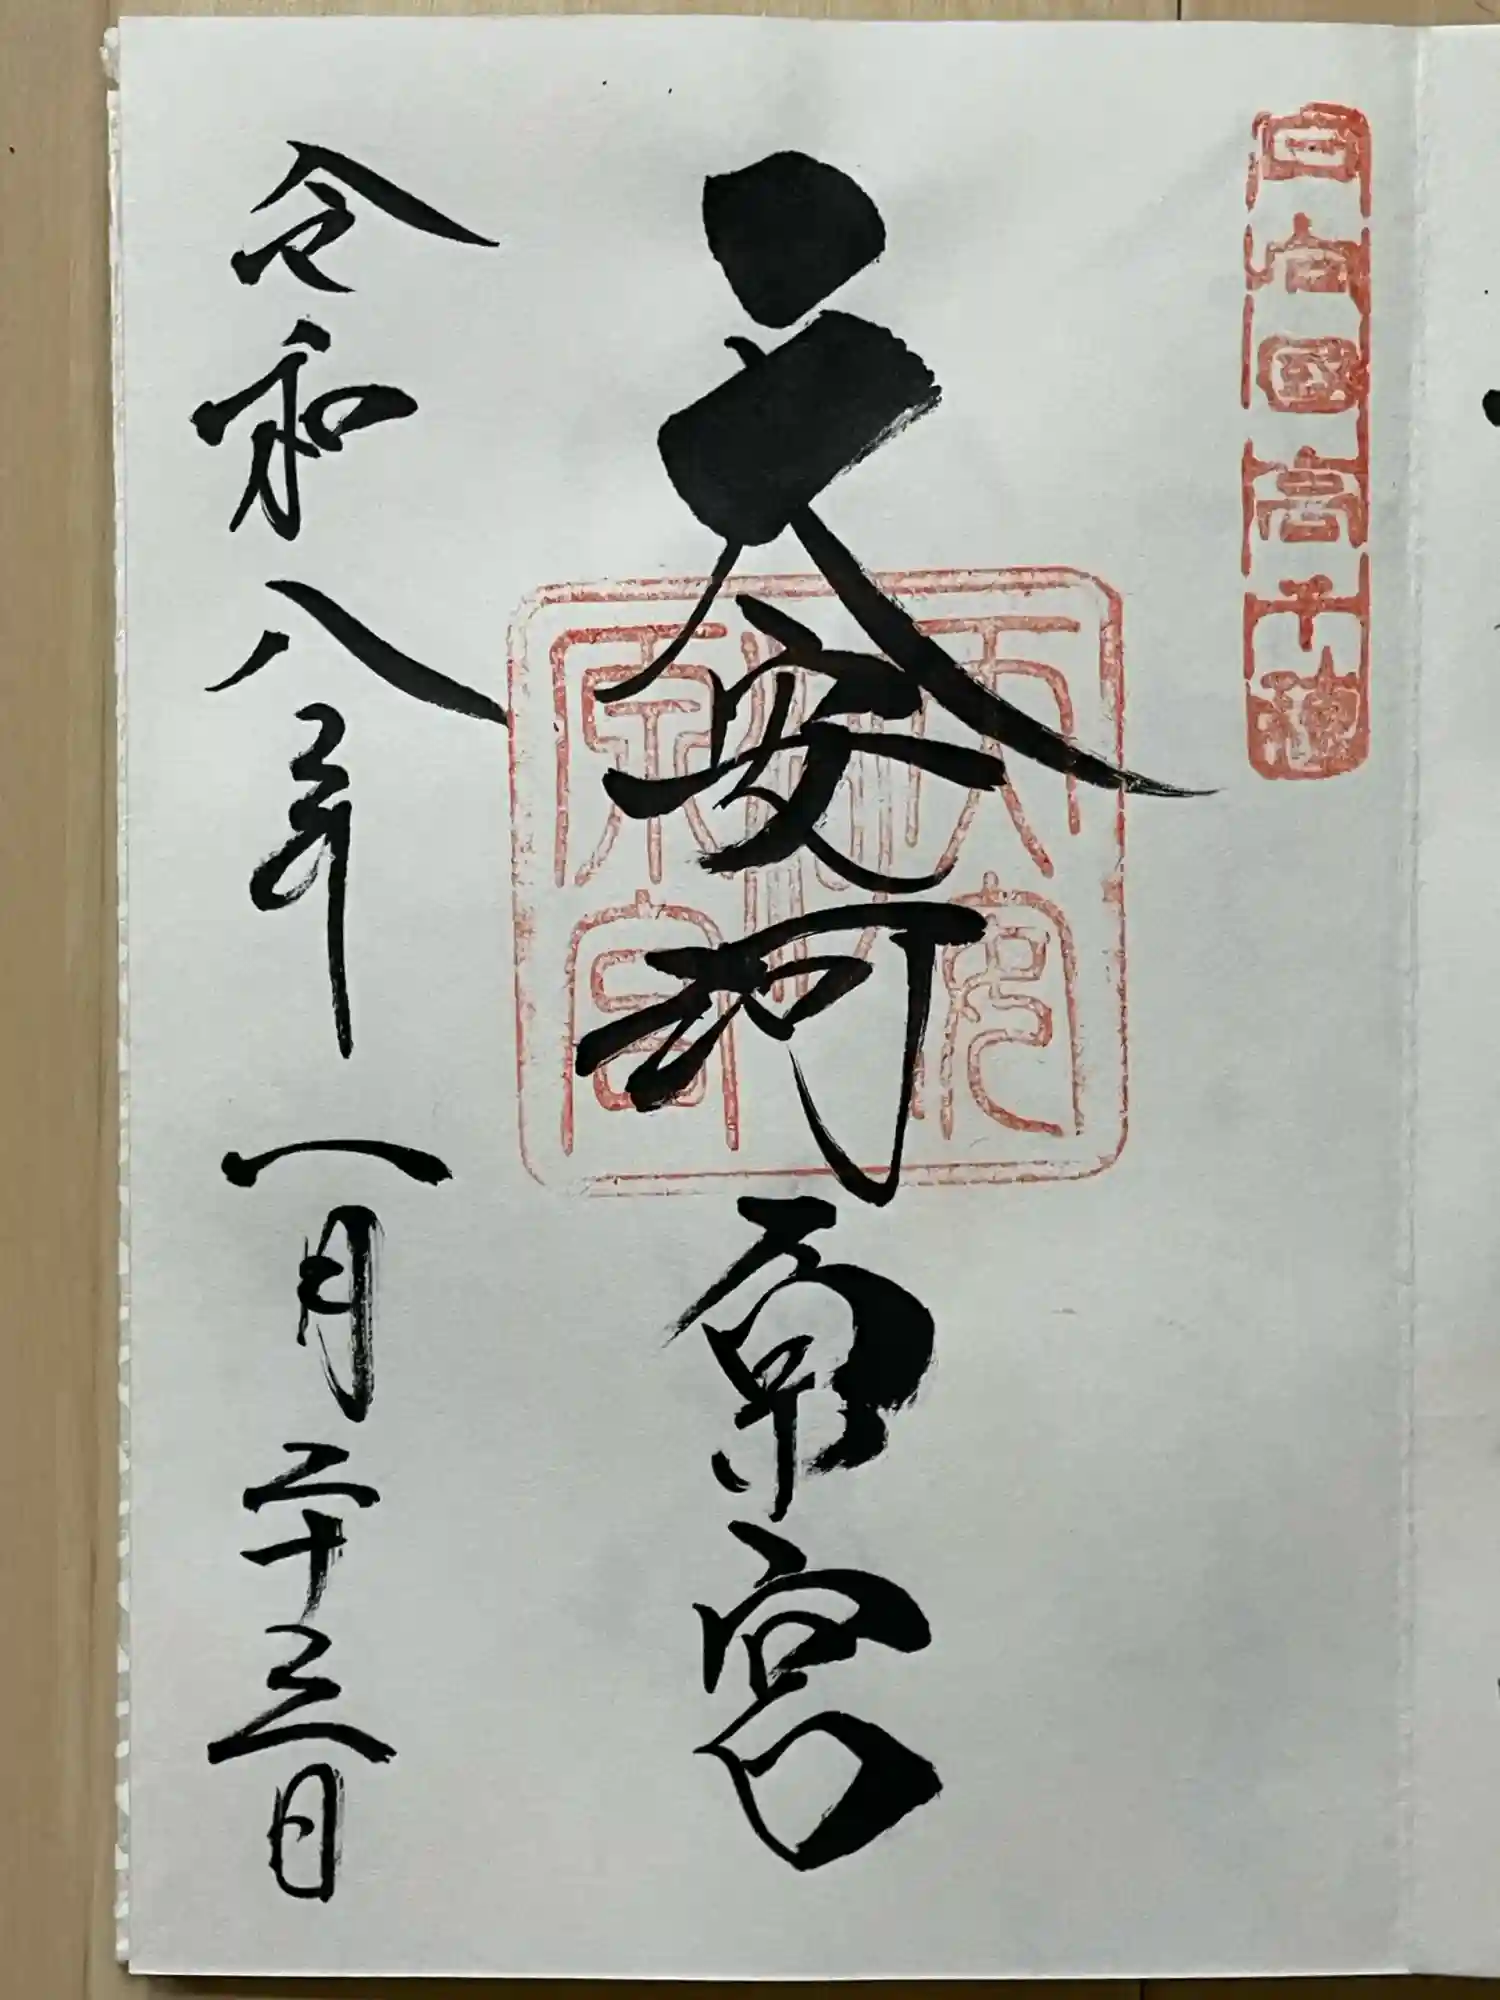 日向國高千穂
天安河原宮
天安河原宮
令和八年一月二十三日